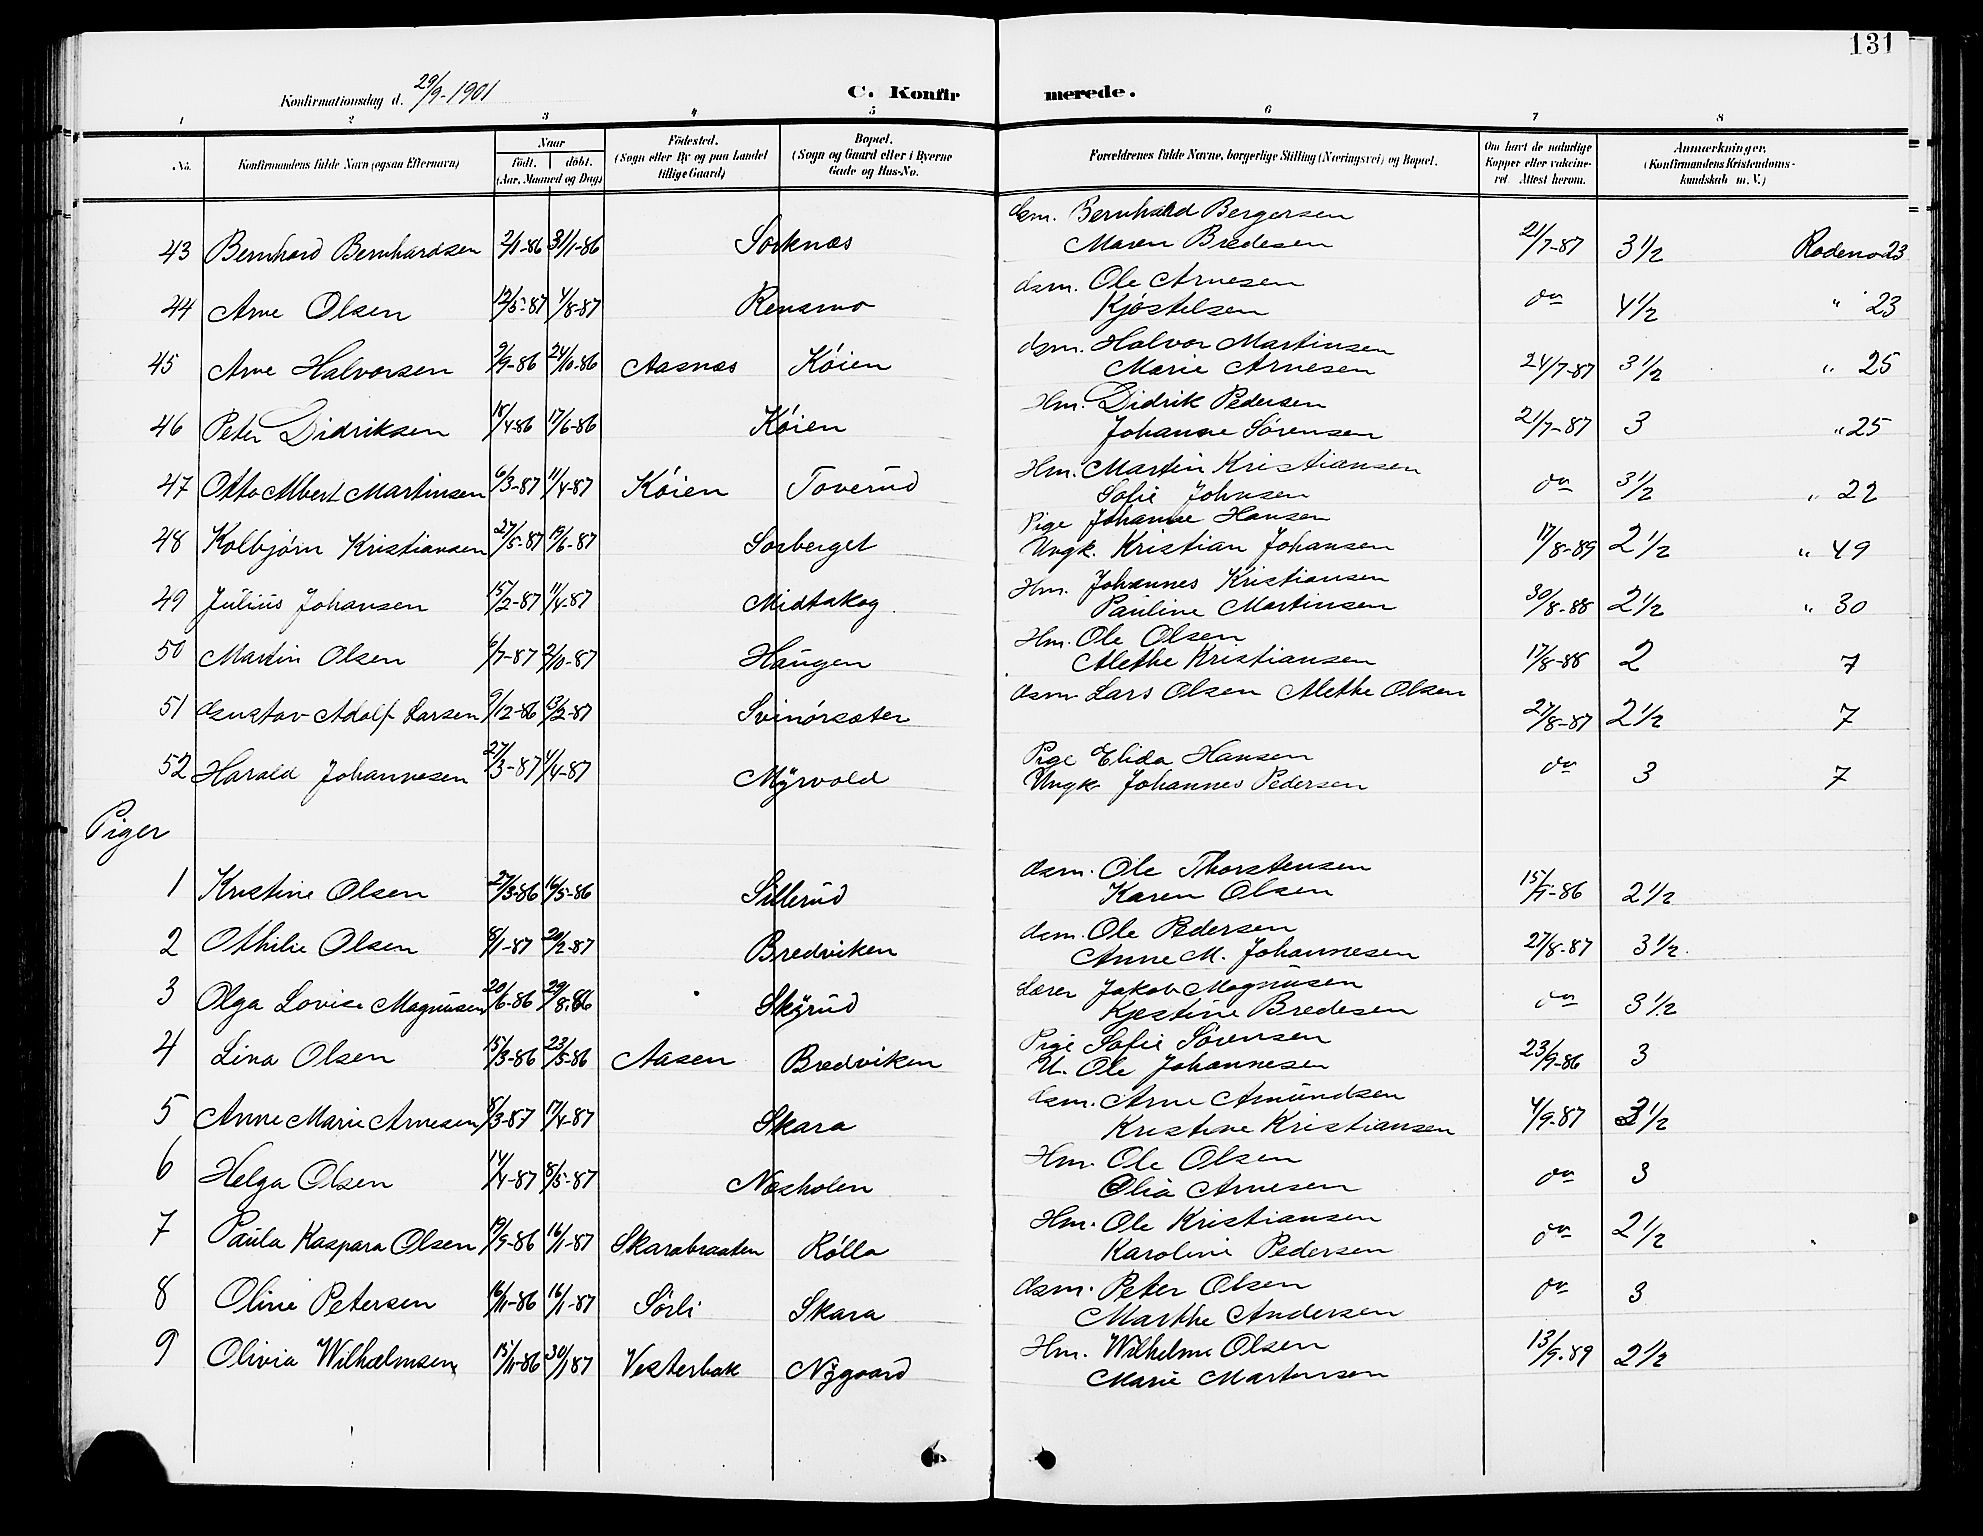 131
Konfirmationsdag d. 29/9-1901
C. Konfirmerede.
1 2 3 4 5 6 7 8
No.
Konfirmandens fulde Navn (ogsaa Efternavn)
Naar
födt. döbt.
(Aar, Maaned og Dag)
Födested.
(Sogn eller By og paa Landet
tillige Gaard)
Bopæl.
(Sogn og Gaard eller i Byerne
Gade og Hus-No.
Forældrenes fulde Navne, borgerlige Stilling (Næringsvei) og Bopæl.
Om havt de naturlige
Kopper eller vakcine-
ret. Attest herom.
Anmærkninger.
(Konfirmandens Kristendoms-
kundskab m. V.)
Gsm. Bernhard Bergersen
43 Bernhard Bernhardsen 2/1-86 31/1-86 Sorknæs Maren Bredesen 21/7-87 3 1/2 Rodeno 23
Gsm. Ole Arnesen
44 Arne Olsen 12/5-87 1/8-87 Rensmo Kjøstelsen do 4 1/2 " 23
Gsm. Halvor Martinsen
45 Arne Halvorsen 2/9-86 24/10-86 Aasnæs Køien Marie Arnesen 24/7-87 3 1/2 " 25
Hm. Didrik Pedersen
46 Peter Didriksen 18/4-86 17/6-86 Køien Johanne Sørensen 21/7-87 3 " 25
Hm. Martin Kristiansen
47 Otto Albert Martinsen 6/3-87 11/4-87 Køien Toverud Sofie Johnsen do 3 1/2 " 22
Pige Johanne Hansen
48 Kolbjørn Kristiansen 27/5-87 19/6-87 Sorberget Ungk. Kristian Johansen 17/8-89 2 1/2 " 49
Hm. Johannes Kristiansen
49 Julius Johansen 15/2-87 11/4-87 Midtskog Pauline Martinsen 30/8-88 2 1/2 " 30
Hm. Ole Olsen
50 Martin Olsen 6/7-87 2/10-87 Haugen Alethe Kristiansen 17/8-88 2 7
Gsm. Lars Olsen Alethe Olsen
51 Gustav Adolf Larsen 9/12-86 13/2-87 Svinørsæter 27/8-87 2 1/2 7
Pige Elida Hansen
52 Harald Johannesen 27/3-87 4/4-87 Myrvold Ungk. Johannes Pedersen do 3 7
Piger
Gsm. Ole Thorstensen
1 Kristine Olsen 27/3-86 16/5-86 Sillerud Karen Olsen 15/9-86 2 1/2
Gsm. Ole Pedersen
2 Othilie Olsen 8/1-87 20/2-87 Bredviken Anne M. Johannesen 27/8-87 3 1/2
Lærer Jakob Magnusen
3 Olga Lovise Magnusen 20/6-86 29/8-86 Skyrud Kjestine Bredesen do 3 1/2
Pige Sofie Sørensen
4 Lina Olsen 15/3-86 23/5-86 Aasen Bredviken U. Ole Johannesen 23/9-86 3
Gsm. Arne Amundsen
5 Anne Marie Arnesen 8/3-87 17/4-87 Skara Kristine Kristiansen 4/9-87 3 1/2
Hm. Ole Olsen
6 Helga Olsen 14/4-87 8/5-87 Næsholen Olia Arnesen do 3
Hm. Ole Kristiansen
7 Paula Kaspara Olsen 19/9-86 16/1-87 Skarabraaten Rølla Karoline Pedersen do 2 1/2
Gsm. Peter Olsen
8 Oline Petersen 16/11-86 16/1-87 Sörli Skara Marthe Andersen do 3
Hm. Wilhelm Olsen
9 Olivia Wilhelmsen 15/11-86 30/1 87 Vesterbak Nygaard Marie Martinsen 13/9-89 2 1/2